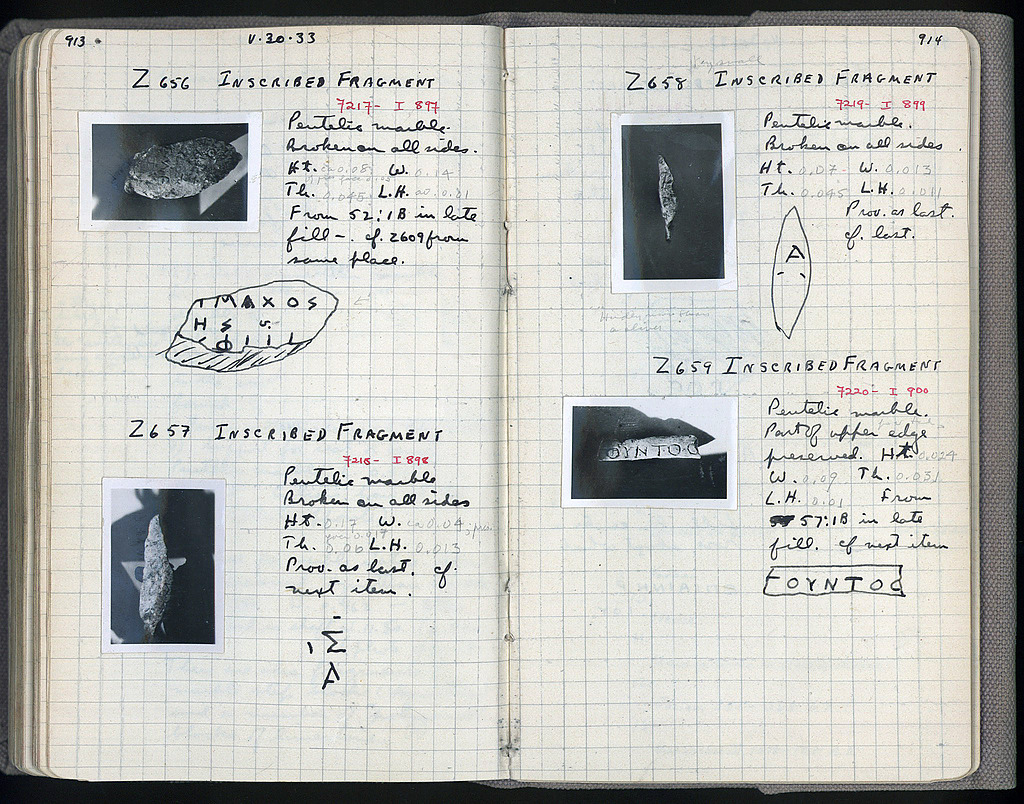 913
V.30.33
Z 656 INSCRIBED FRAGMENT
7217 - I 897
Pentelic marble.
Broken on all sides.
Ht. W. 0.14
Th. 0.045 L.H. ca 0.01
From 52:1B in late
fill -. cf. Z609 from
same place.
MAXOS
H S
Φ I I L
Z 657 INSCRIBED FRAGMENT
7218 - I 898
Pentelic marble
Broken on all sides
Ht. 0.17 W. ca 0.04
Th. 0.06 L.H. 0.013
Prov. as last. cf.
next item.
Σ
A
914
Z 658 INSCRIBED FRAGMENT
7219 - I 899
Pentelic marble.
Broken on all sides.
Ht. 0.07 W. 0.013
Th. 0.045 L.H. 0.011
Prov. as last.
cf. last.
A
Z 659 INSCRIBED FRAGMENT
7220 - I 900
Pentelic marble.
Part of upper edge
preserved. Ht. 0.024
W. 0.09 Th. 0.031
L.H. 0.01 From
57:1B in late
fill. cf next item
OYNTOC